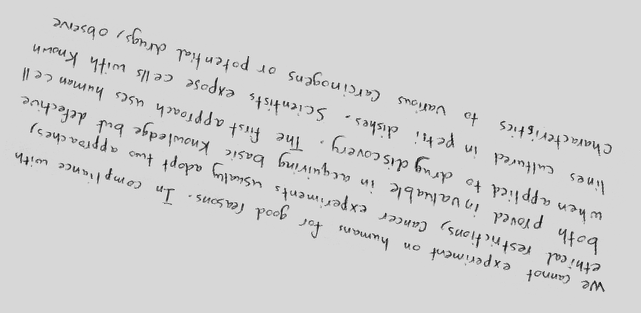 We cannot experiment on humans for good reasons. In compliance with
ethical restrictions, cancer experiments usually adopt two approaches,
both proved invaluable in acquiring basic knowledge but defective
when applied to drug discovery. The first approach uses human cell
lines cultured in petri dishes. Scientists expose cells with known
characteristics to various carcinogens or potential drugs, observe